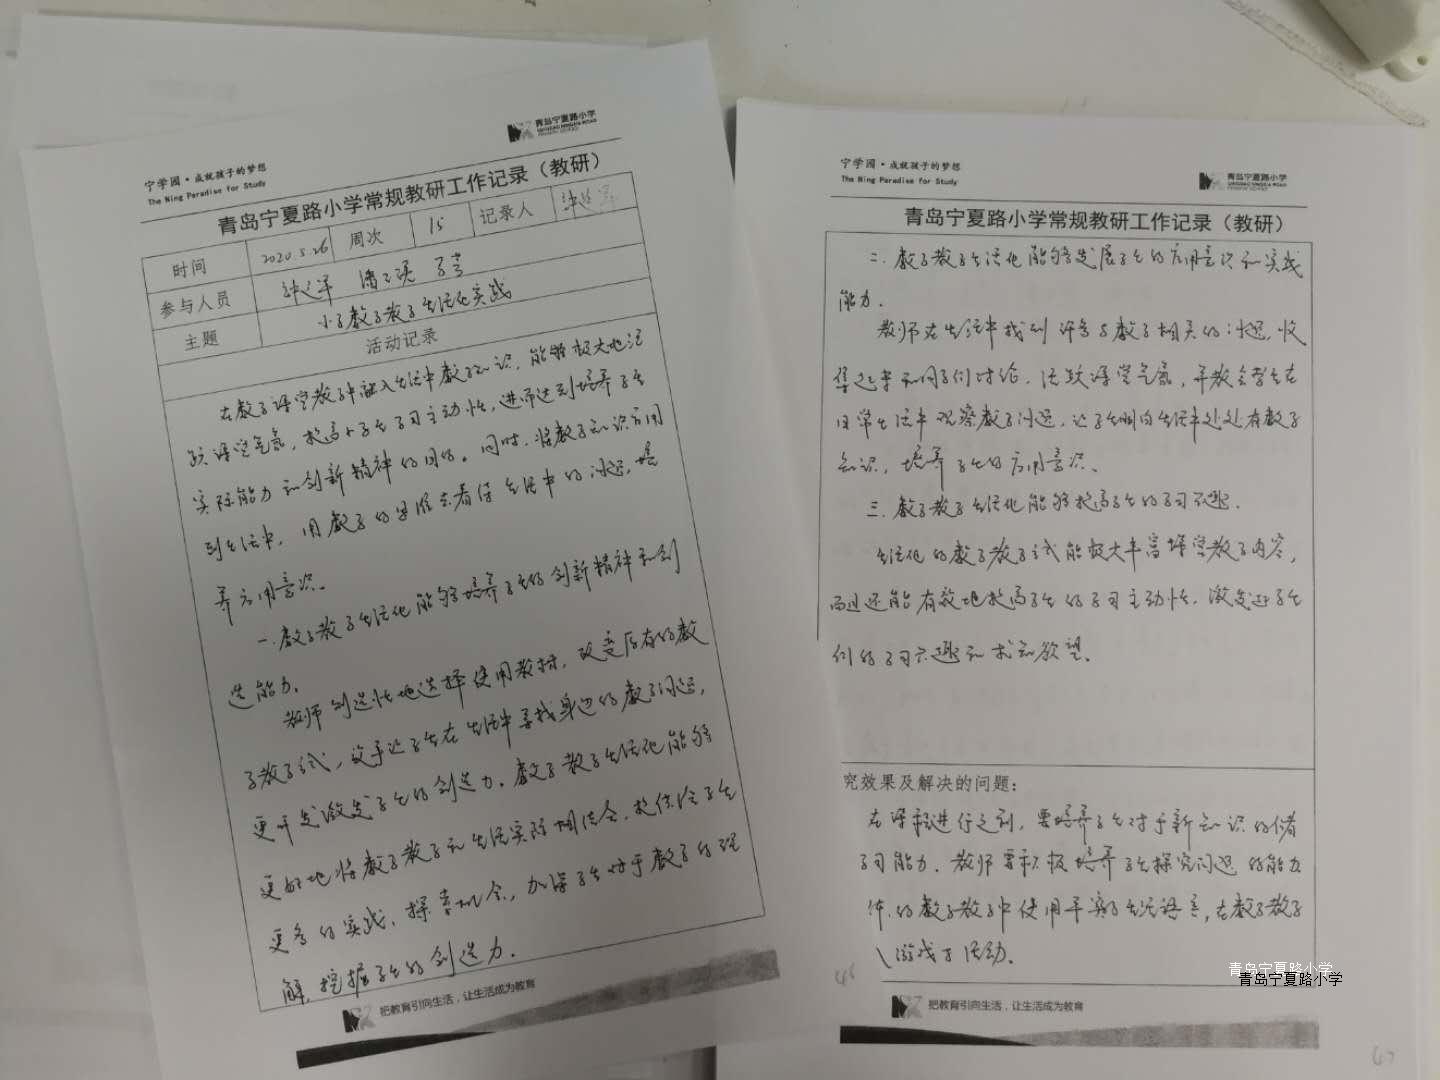 宁学园·成就孩子的梦想
The Ning Paradise for Study
青岛宁夏路小学
QINGDAO NINGXIA ROAD
PRIMARY SCHOOL
青岛宁夏路小学常规教研工作记录（教研）
时间 2020.5.26 周次 15 记录人
参与人员
主题 小学数学教学生活化实践
活动记录
在数学课堂教学中融入生活中数学知识，能够极大地活
跃课堂气氛，提高小学生学习主动性，进而达到培养学生
实际能力和创新精神的目的。同时，将数学知识应用
到生活中，用数学的思维去看待生活中的问题，培
养应用意识。
一.数学教学生活化能够培养学生的创新精神和创
造能力.
教师创造性地选择使用教材，改变原有的数
学教学模式，让学生在生活中寻找身边的数学问题，
更开发激发学生的创造力。数学教学生活化能够
更好地将数学教学和生活实际相结合，提供给学生
更多的实践、探索机会，加深学生对于数学的理
解，挖掘学生的创造力.
把教育引向生活，让生活成为教育
宁学园·成就孩子的梦想
The Ning Paradise for Study
青岛宁夏路小学
QINGDAO NINGXIA ROAD
PRIMARY SCHOOL
青岛宁夏路小学常规教研工作记录（教研）
二.数学教学生活化能够发展学生的应用意识和实践
能力.
教师在生活中找到许多与数学相关的问题，收
集起来和同学们讨论，活跃课堂气氛，并教会学生在
日常生活中观察数学问题，让学生明白生活中处处有数学
知识，培养学生的应用意识。
三.数学教学生活化能够提高学生的学习兴趣.
生活化的数学教学模式能极大丰富课堂教学内容，
而且还能有效地提高学生的学习主动性，激发起学生
们的学习兴趣和求知欲望。
究效果及解决的问题：
在课程进行之前，要培养学生对于新知识的储备
学习能力.教师要积极培养学生探究问题的能力
体.的数学教学中使用平实的生活语言，在数学教学
游戏于活动.
46
把教育引向生活，让生活成为教育
47
青岛宁夏路小学